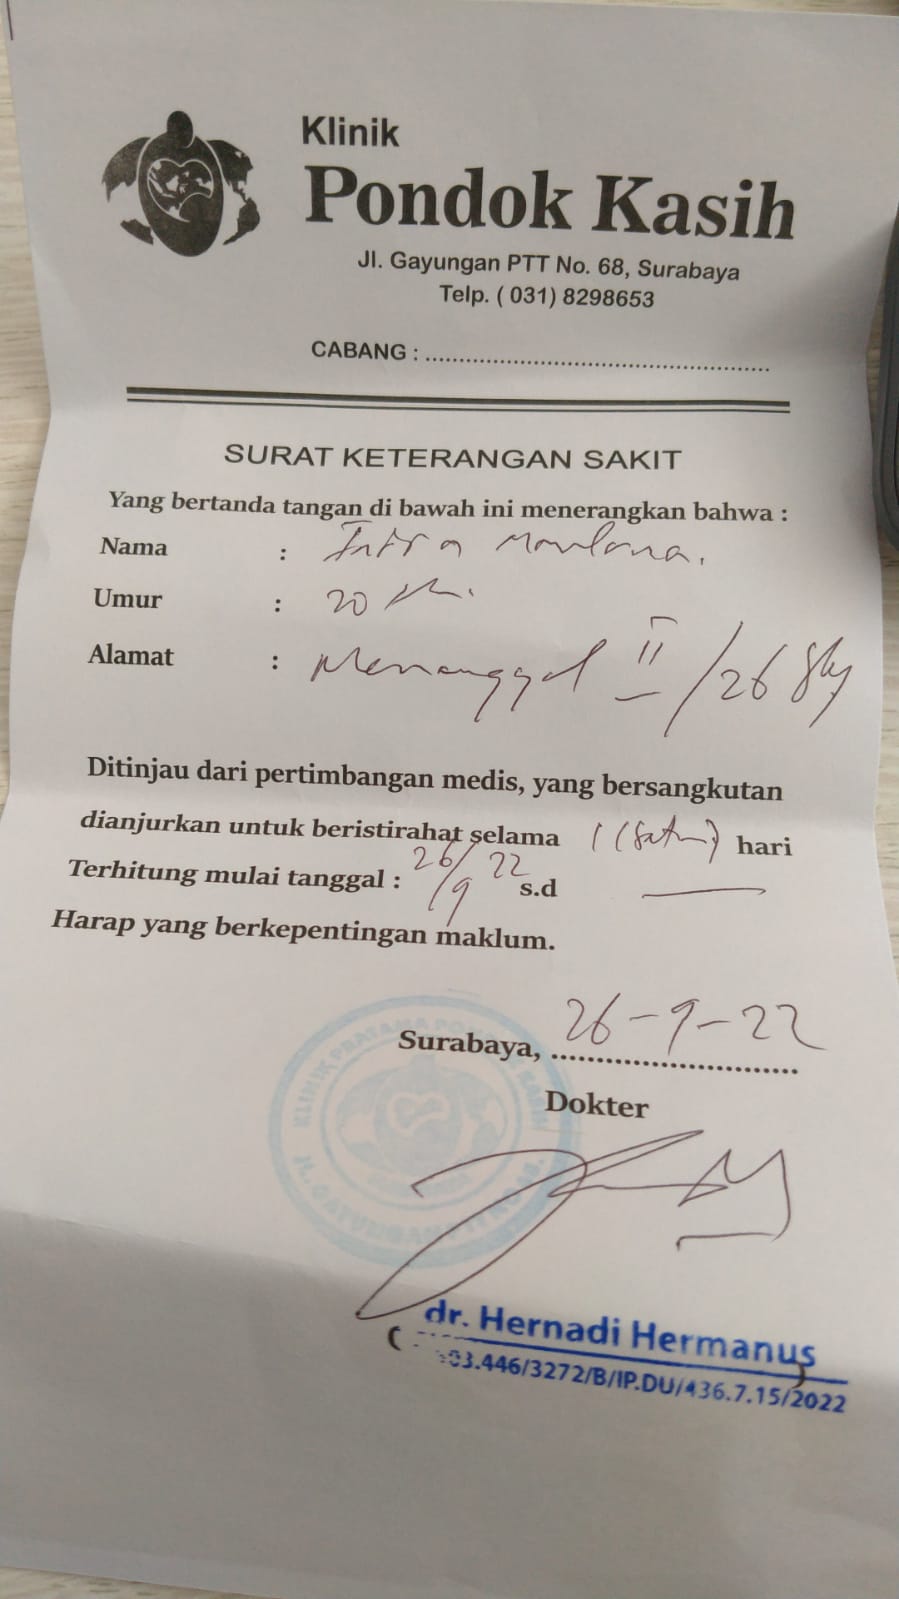 Klinik
Pondok Kasih
Jl. Gayungan PTT No. 68, Surabaya
Telp. ( 031) 8298653
CABANG : ........................................................
SURAT KETERANGAN SAKIT
Yang bertanda tangan di bawah ini menerangkan bahwa :
Nama : Maulana.
Umur : 20 th.
Alamat : Menanggal II / 26 Sby
Ditinjau dari pertimbangan medis, yang bersangkutan
dianjurkan untuk beristirahat selama 1 (Satu) hari
Terhitung mulai tanggal : 26/9 22 s.d —
Harap yang berkepentingan maklum.
Surabaya, 26-9-22
Dokter
KLINIK PRATAMA PONDOK KASIH
dr. Hernadi Hermanus
( 03.446/3272/B/IP.DU/436.7.15/2022 )